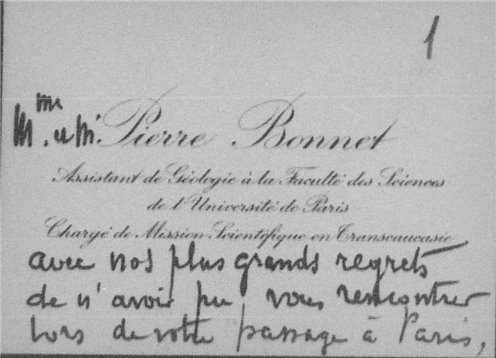 1
Mme. et M. Pierre Bonnet
Assistant de Géologie à la Faculté des Sciences
de l'Université de Paris
Chargé de Mission Scientifique en Transcaucasie
avec nos plus grands regrets
de n'avoir pu vous rencontrer
lors de votre passage à Paris,